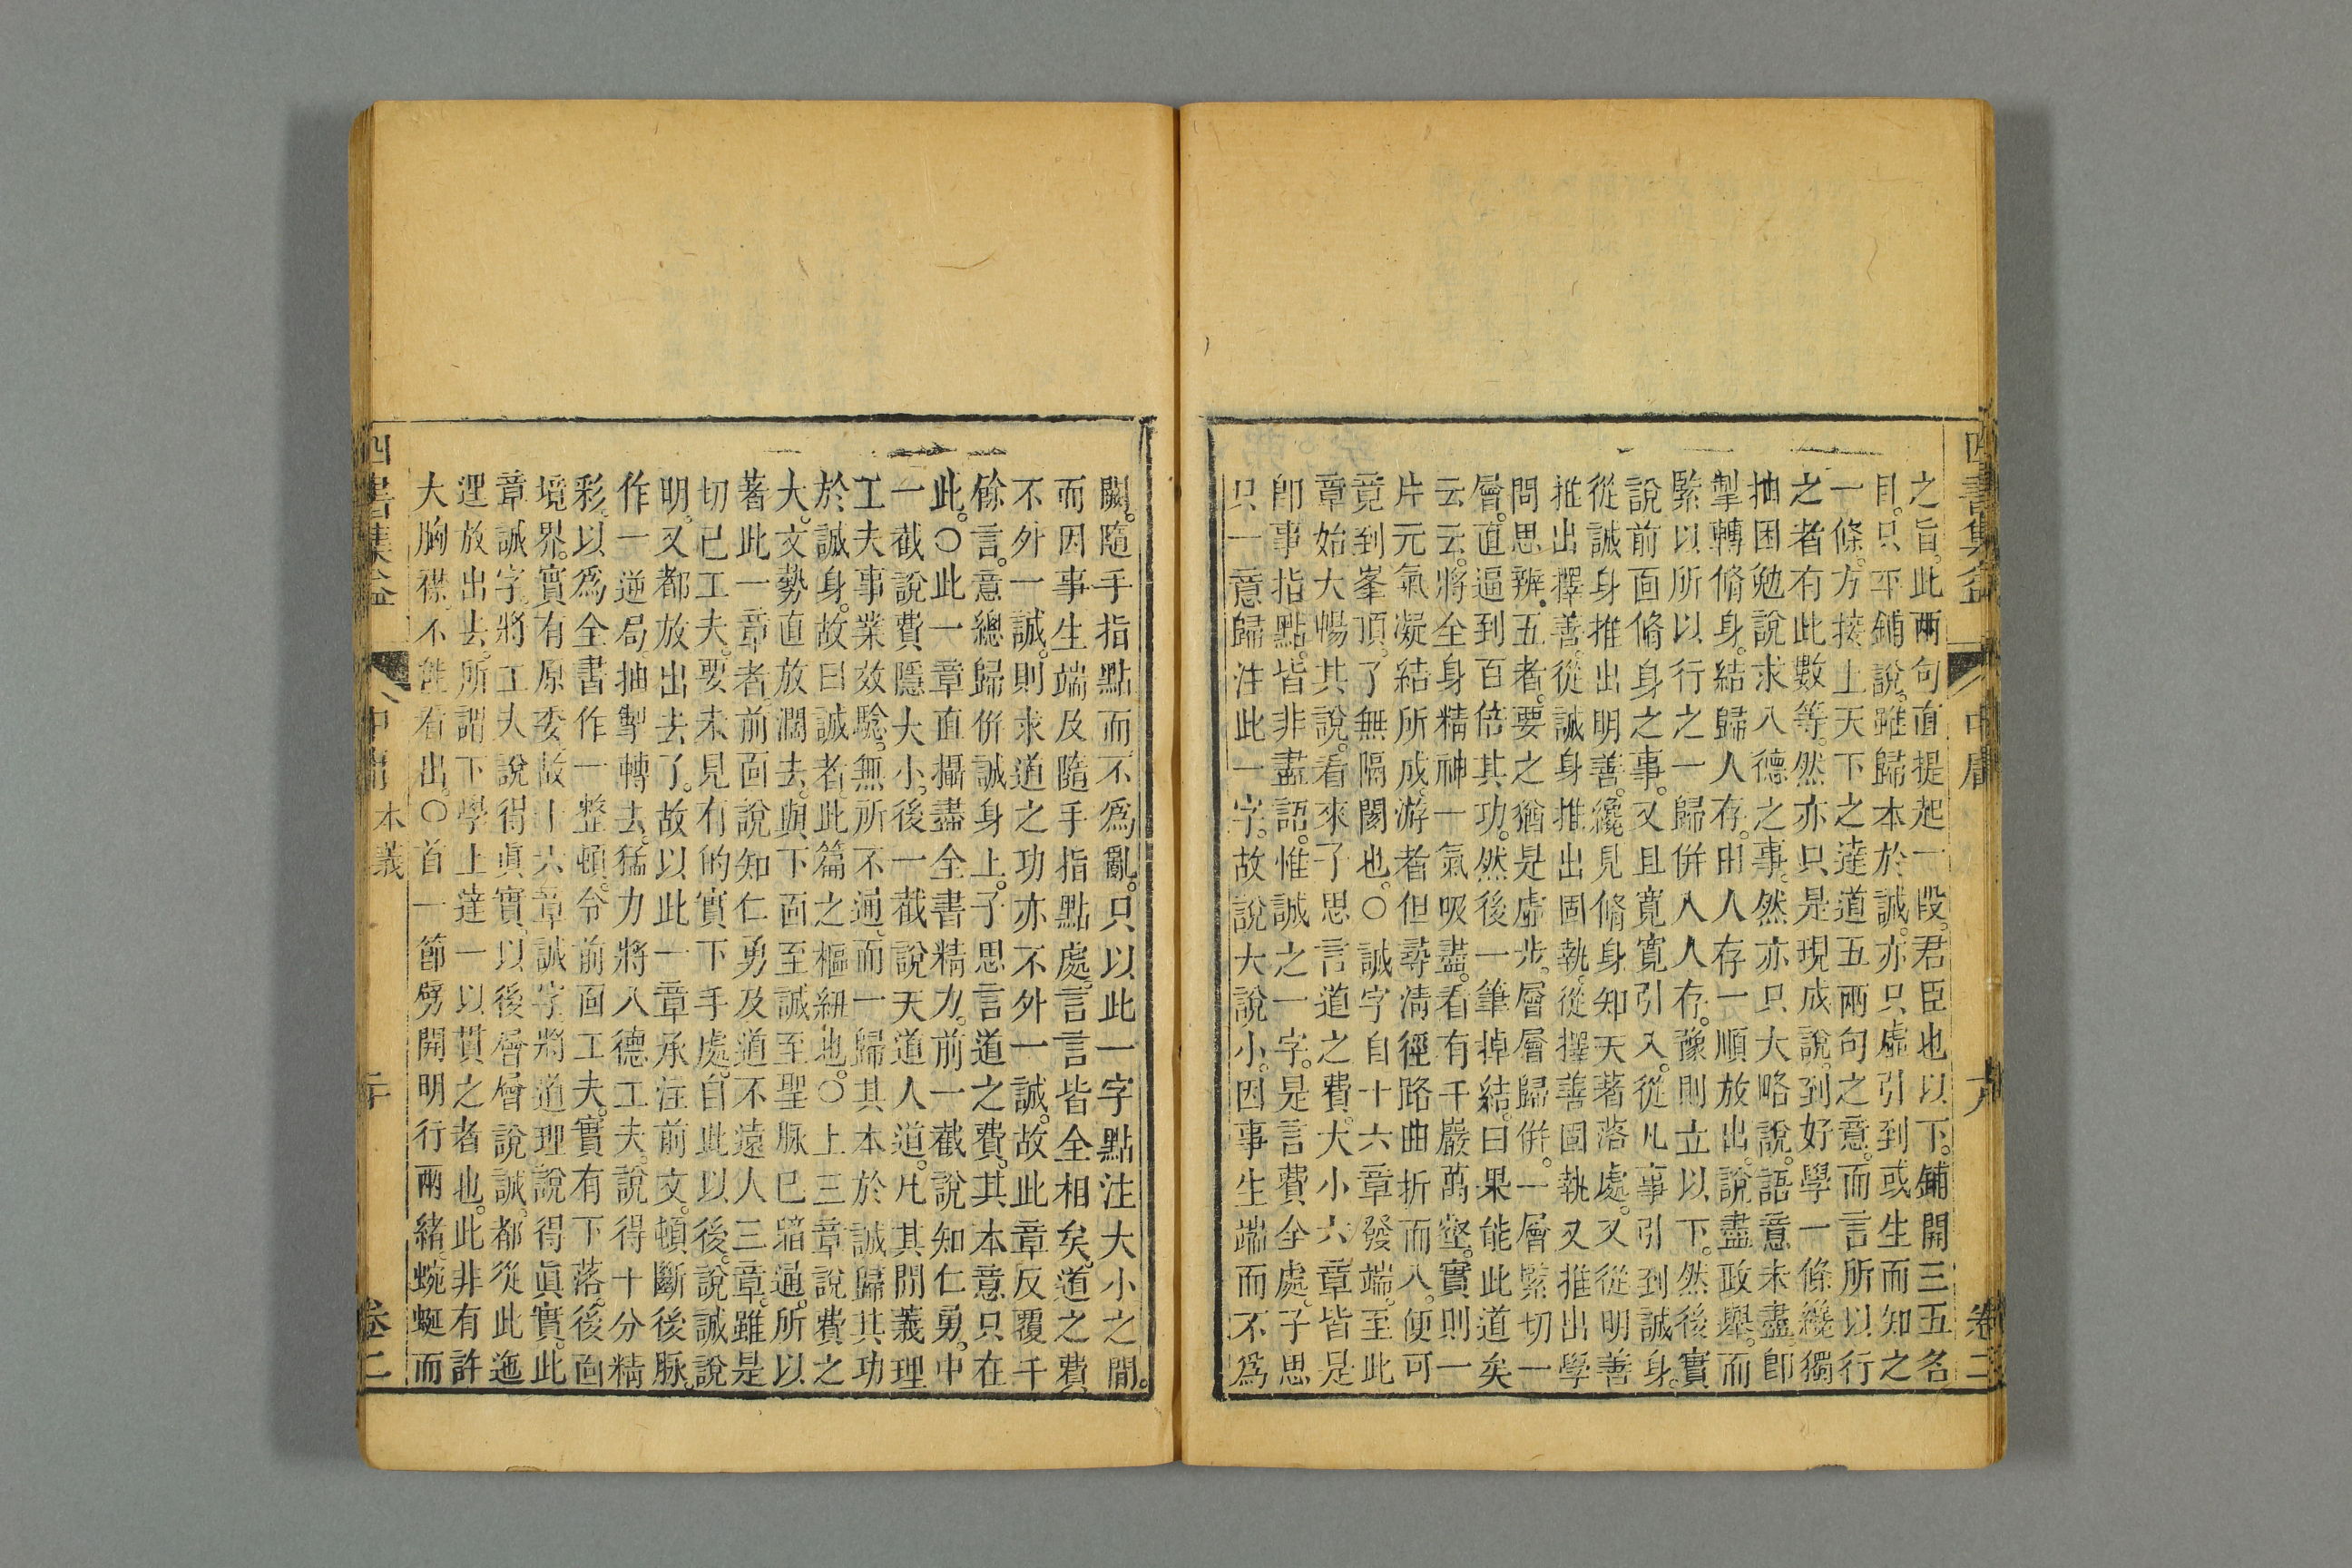 四書集益 中庸 卷二
之旨。此兩句直提起一段。君臣也以下。鋪開三五名
目。只平鋪說。雖歸本於誠。亦只虛引到或生而知之
一條。方接上天下之達道五兩句之意。而言所以行
之者有此數等。然亦只是現成說。到好學一條纔獨
抽困勉說求入德之事。然亦只大略說。語意未盡。即
掣轉脩身。結歸人存。由人存一順放出。說盡政舉。而
緊以所以行之一歸併入人存。豫則立以下。然後實
說前面脩身之事。又且寬寬引入。從凡事引到誠身。
從誠身推出明善。纔見脩身知天著落處。又從明善
推出擇善。從誠身推出固執。從擇善固執又推出學
問思辨。五者。要之猶是虛步。層層歸併。一層緊切一
層。直逼到百倍其功。然後一筆掉結。曰果能此道矣
云云。將全身精神一氣吸盡。看有千巖萬壑。實則一
片元氣凝結所成。游者但尋清徑路曲折而入。便可
竟到峯頂。了無隔閡也。○誠字自十六章發端。至此
章始大暢其說。看來子思言道之費。大小六章皆是
即事指點。皆非盡語。惟誠之一字。是言費全處。子思
只一意歸注此一字。故說大說小。因事生端而不爲
闕。隨手指點而不爲亂。只以此一字點注大小之間。
而因事生端及隨手指點處。言言皆全相矣。道之費
不外一誠。則求道之功亦不外一誠。故此章反覆千
餘言。意總歸併誠身上。子思言道之費。其本意只在
此。○此一章直攝盡全書精力。前一截說知仁勇。中
一截說費隱大小。後一截說天道人道。凡其間義理
工夫事業效驗。無所不通。而一歸其本於誠歸其功
於誠身。故曰誠者。此篇之樞紐也。○上三章說費之
大。文勢直放濶去。與下面至誠至聖脉已暗通。所以
著此一章者。前面說知仁勇及道不遠人三章。雖是
切己工夫。要未見有的實下手處。自此以後。說誠說
明。又都放出去了。故以此一章承注前文。頓斷後脉。
作一逆局。抽掣轉去。猛力將入德工夫。說得十分精
彩。以爲全書作一整頓。令前面工夫。實有下落。後面
境界。實有原委。故十六章誠字將道理說得眞實。此
章誠字。將工夫說得眞實。以後層層說。誠。都從此迤
逕放出去。所謂下學上達一以貫之者也。此非有許
大胸襟。不能看出。○首一節劈開明行兩緒。蜿蜒而
四書集益 中庸 本義 卷二